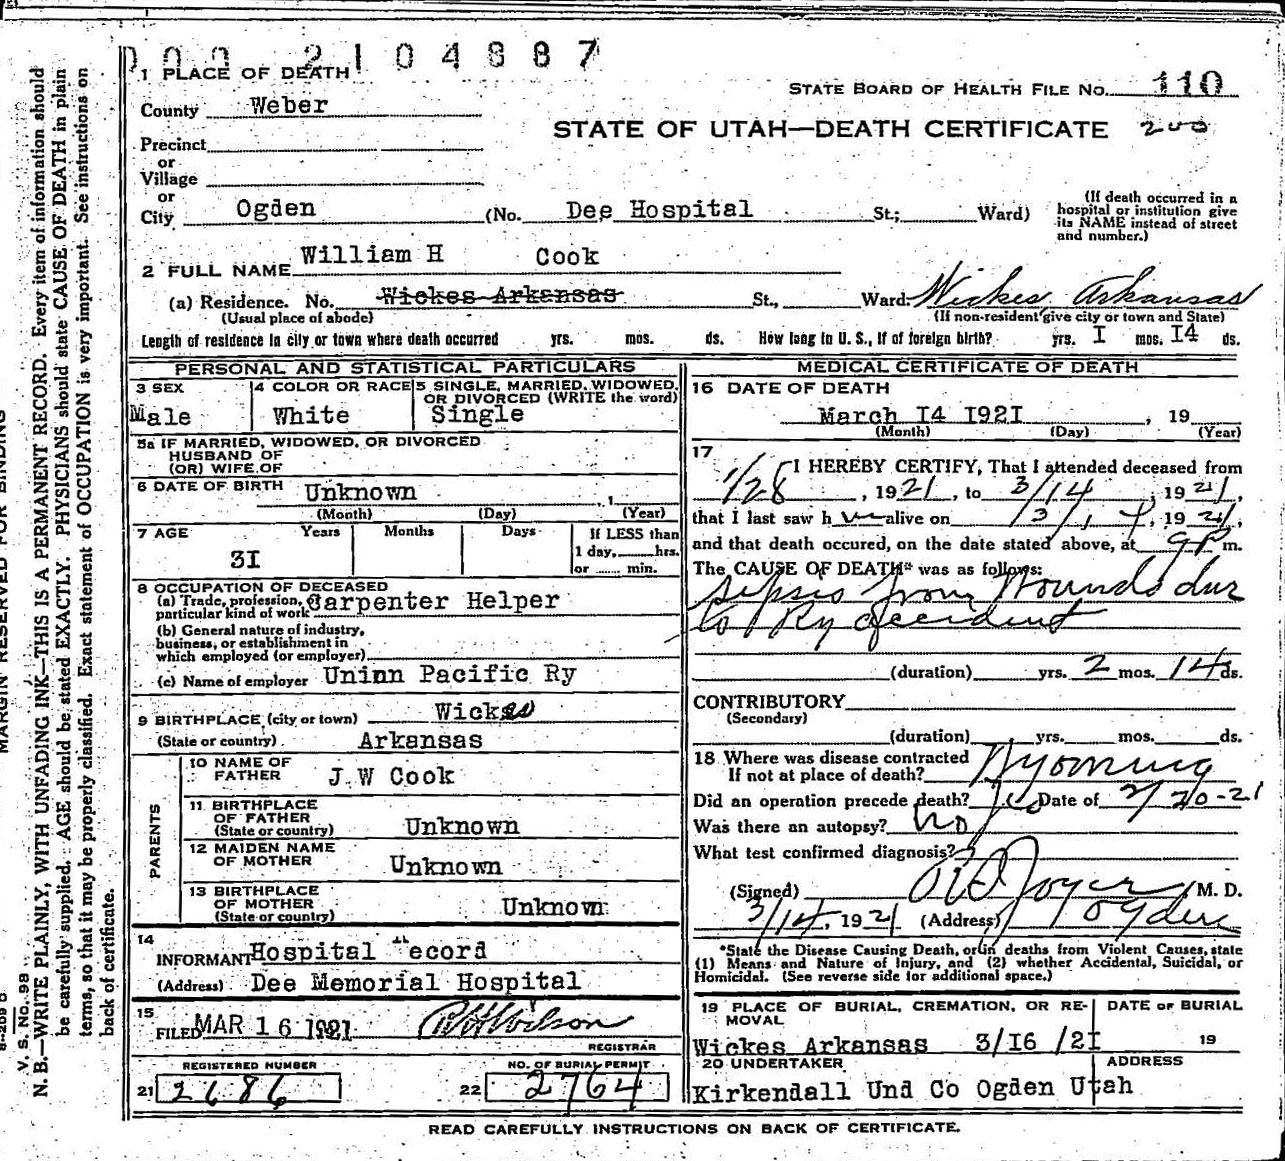 2104887
1 PLACE OF DEATH
STATE BOARD OF HEALTH FILE No. 110
County Weber
STATE OF UTAH—DEATH CERTIFICATE 200
Precinct
or
Village
or
City Ogden (No. Dee Hospital St.; Ward)
(If death occurred in a hospital or institution give its NAME instead of street and number.)
2 FULL NAME William H Cook
(a) Residence. No. Wickes Arkansas St., Ward. Wickes, Arkansas
(Usual place of abode) (If non-resident give city or town and State)
Length of residence in city or town where death occurred yrs. mos. ds. How long in U. S., if of foreign birth? yrs. I mos. I4 ds.
PERSONAL AND STATISTICAL PARTICULARS
3 SEX
Male
4 COLOR OR RACE
White
5 SINGLE, MARRIED, WIDOWED, OR DIVORCED (WRITE the word)
Single
5a IF MARRIED, WIDOWED, OR DIVORCED
HUSBAND OF
(OR) WIFE OF
6 DATE OF BIRTH Unknown , 1
(Month) (Day) (Year)
7 AGE Years Months Days If LESS than
1 day, hrs.
or min.
3I
8 OCCUPATION OF DECEASED
(a) Trade, profession, or particular kind of work Carpenter Helper
(b) General nature of industry,
business, or establishment in
which employed (or employer)
(c) Name of employer Uninn Pacific Ry
9 BIRTHPLACE (city or town) Wickes
(State or country) Arkansas
PARENTS
10 NAME OF FATHER J.W Cook
11 BIRTHPLACE OF FATHER (State or country) Unknown
12 MAIDEN NAME OF MOTHER Unknown
13 BIRTHPLACE OF MOTHER (State or country) Unknown
14
INFORMANT Hospital ecord
(Address) Dee Memorial Hospital
15
FILED MAR 16 1921 Wilson
REGISTRAR
REGISTERED NUMBER
21 2686
NO. OF BURIAL PERMIT
22 2764
MEDICAL CERTIFICATE OF DEATH
16 DATE OF DEATH
March I4 I92I , 19
(Month) (Day) (Year)
17 I HEREBY CERTIFY, That I attended deceased from
1/28 , 1921, to 3/14 , 1921,
that I last saw h alive on , 1921,
and that death occured, on the date stated above, at 9 P m.
The CAUSE OF DEATH* was as follows:
sepsis from Wounds due
to Ry accident
(duration) yrs. 2 mos. 14 ds.
CONTRIBUTORY
(Secondary)
(duration) yrs. mos. ds.
18 Where was disease contracted
If not at place of death? Wyoming
Did an operation precede death? Date of 2/20-21
Was there an autopsy? no
What test confirmed diagnosis?
(Signed) Joyce M. D.
3/14, 1921 (Address) Ogden
*State the Disease Causing Death, or in deaths from Violent Causes, state
(1) Means and Nature of Injury, and (2) whether Accidental, Suicidal, or
Homicidal. (See reverse side for additional space.)
19 PLACE OF BURIAL, CREMATION, OR REMOVAL DATE OF BURIAL
Wickes Arkansas 3/I6 /2I 19
20 UNDERTAKER ADDRESS
Kirkendall Und Co Ogden Utah
READ CAREFULLY INSTRUCTIONS ON BACK OF CERTIFICATE.
MARGIN RESERVED FOR BINDING
V. S. No. 98
N. B.—WRITE PLAINLY, WITH UNFADING INK—THIS IS A PERMANENT RECORD. Every item of information should
be carefully supplied. AGE should be stated EXACTLY. PHYSICIANS should state CAUSE OF DEATH in plain
terms, so that it may be properly classified. Exact statement of OCCUPATION is very important. See instructions on
back of certificate.